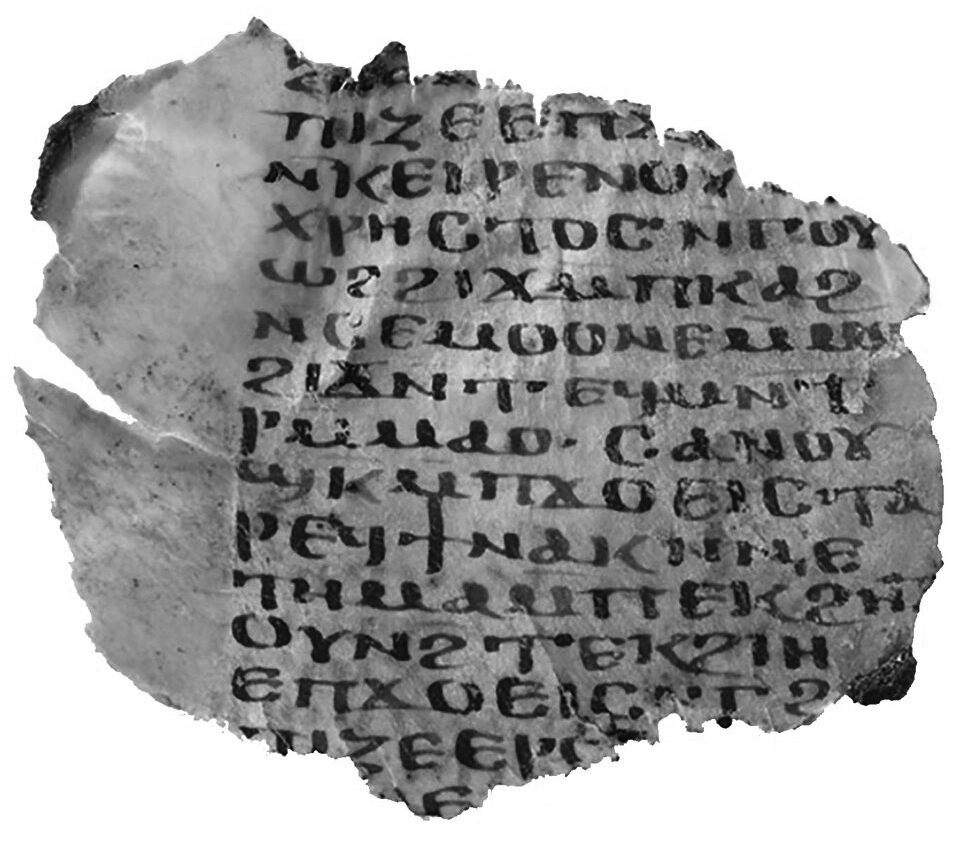 ⲡⲓⲍⲉⲉⲡϫ
ⲛⲕⲉⲓⲣⲉⲛⲟⲩ
ⲭⲣⲏⲥⲧⲟⲥ·ⲛⲅⲟⲩ
ⲱϩϩⲓϫⲙⲡⲕⲁϩ
ⲛⲥⲉⲙⲟⲟⲛⲉⲙⲙⲟ
ϩⲓϫⲛⲧⲉϥⲙⲛⲧ
ⲣⲙⲙⲁⲟ·ⲥⲁⲛⲟⲩ
ϣⲕⲙⲡϫⲟⲉⲓⲥ·ⲧⲁ
ⲣⲉϥϯⲛⲁⲕⲛⲛⲉ
ⲧⲏⲙⲁⲙⲡⲉⲕϩⲏⲧ
ⲟⲩⲛϩⲧⲉⲕϩⲓⲏ
ⲉⲡϫⲟⲉⲓⲥⲛⲅϩ
ⲡⲓⲍⲉⲉⲣⲟ